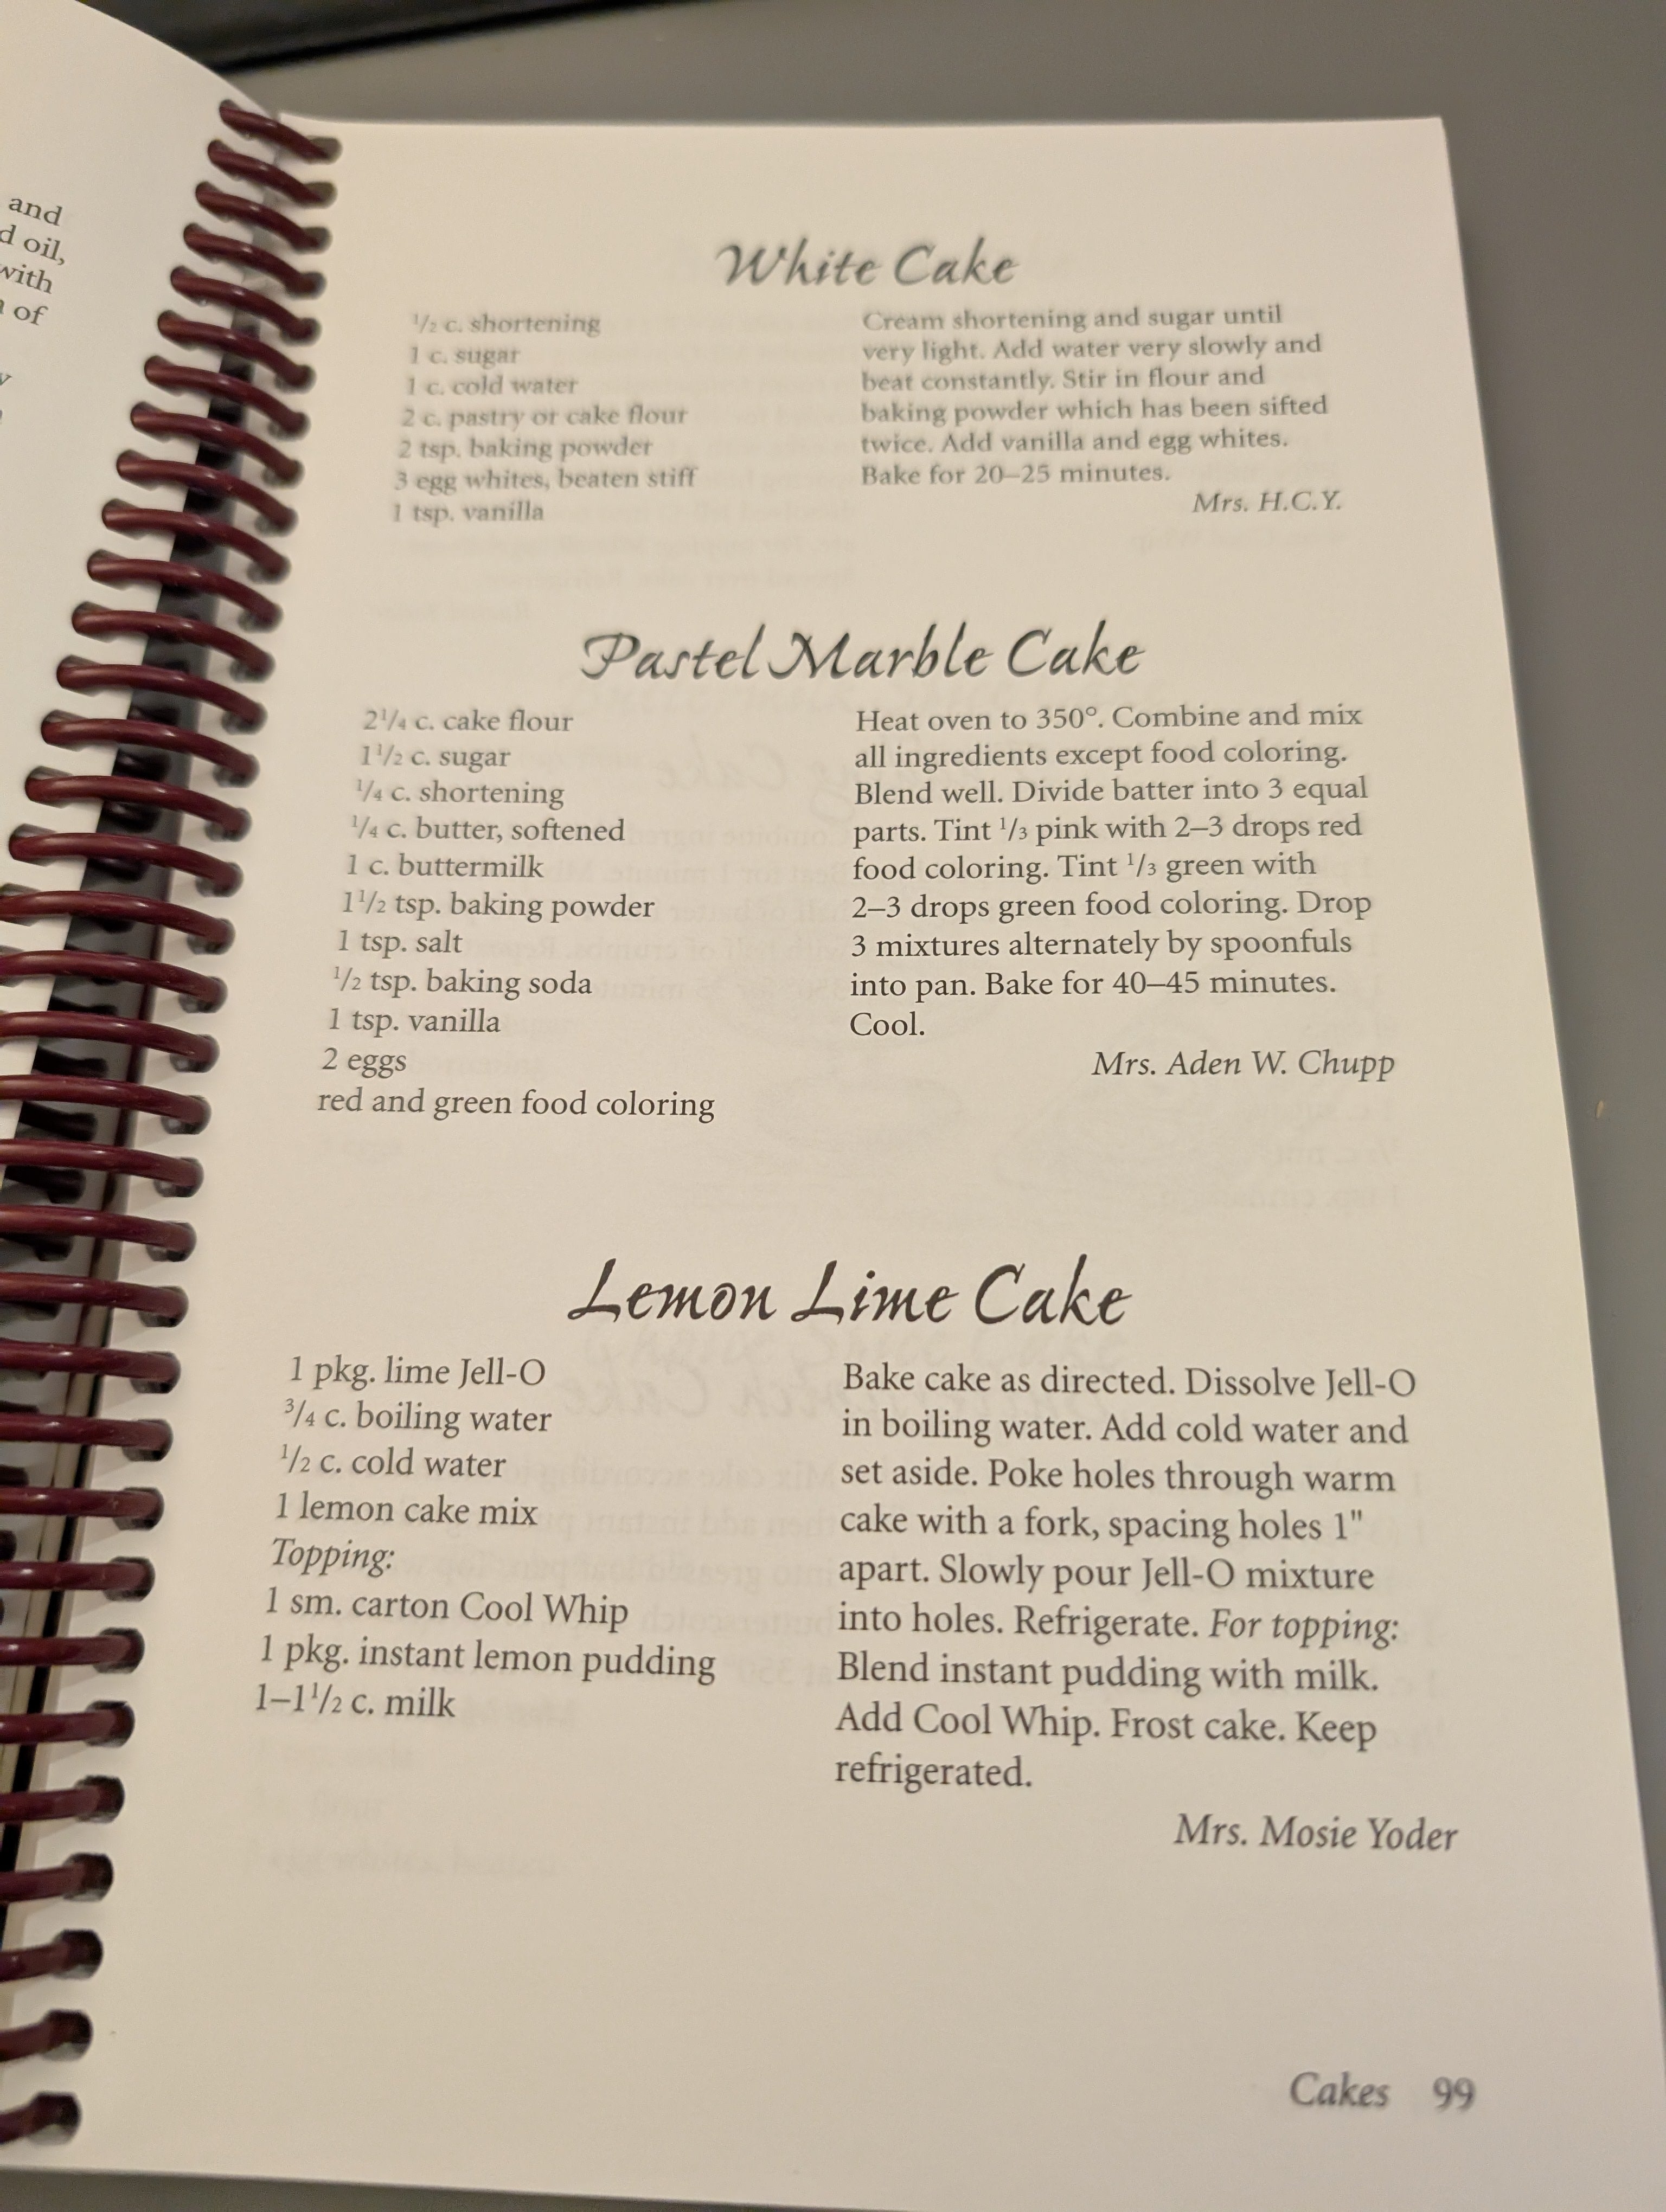 and
d oil,
with
of
White Cake
1/2 c. shortening
1 c. sugar
1 c. cold water
2 c. pastry or cake flour
2 tsp. baking powder
3 egg whites, beaten stiff
1 tsp. vanilla
Cream shortening and sugar until
very light. Add water very slowly and
beat constantly. Stir in flour and
baking powder which has been sifted
twice. Add vanilla and egg whites.
Bake for 20–25 minutes.
Mrs. H.C.Y.
Pastel Marble Cake
2 1/4 c. cake flour
1 1/2 c. sugar
1/4 c. shortening
1/4 c. butter, softened
1 c. buttermilk
1 1/2 tsp. baking powder
1 tsp. salt
1/2 tsp. baking soda
1 tsp. vanilla
2 eggs
red and green food coloring
Heat oven to 350°. Combine and mix
all ingredients except food coloring.
Blend well. Divide batter into 3 equal
parts. Tint 1/3 pink with 2–3 drops red
food coloring. Tint 1/3 green with
2–3 drops green food coloring. Drop
3 mixtures alternately by spoonfuls
into pan. Bake for 40–45 minutes.
Cool.
Mrs. Aden W. Chupp
Lemon Lime Cake
1 pkg. lime Jell-O
3/4 c. boiling water
1/2 c. cold water
1 lemon cake mix
Topping:
1 sm. carton Cool Whip
1 pkg. instant lemon pudding
1–1 1/2 c. milk
Bake cake as directed. Dissolve Jell-O
in boiling water. Add cold water and
set aside. Poke holes through warm
cake with a fork, spacing holes 1"
apart. Slowly pour Jell-O mixture
into holes. Refrigerate. For topping:
Blend instant pudding with milk.
Add Cool Whip. Frost cake. Keep
refrigerated.
Mrs. Mosie Yoder
Cakes 99